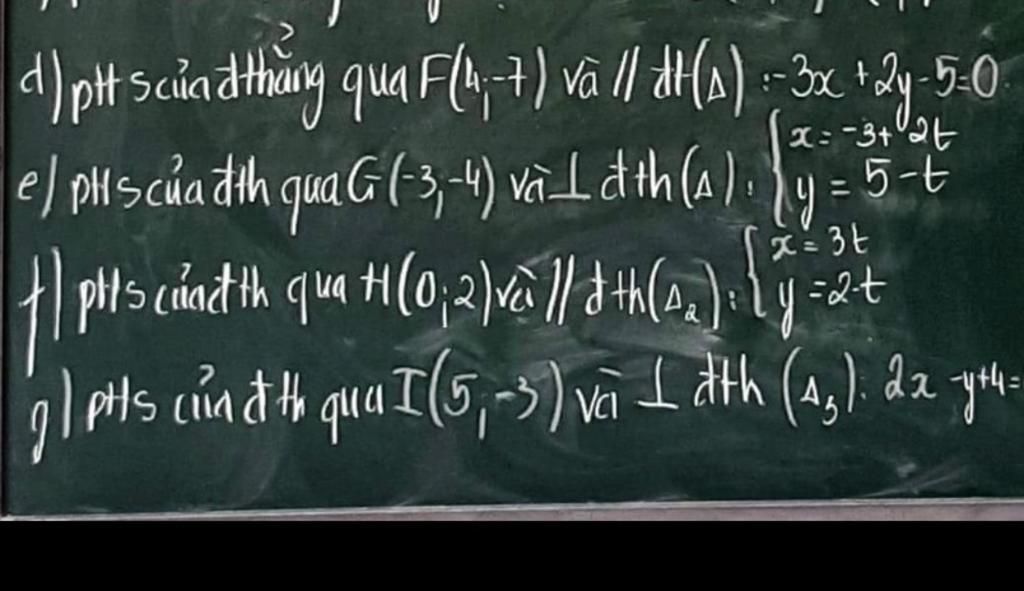 d) ptts của đthẳng qua F(4;-7) và // đt(Δ): -3x + 2y - 5 = 0
e) ptts của đth qua G(-3,-4) và ⊥ đth(Δ): { x = -3 + 2t
y = 5 - t
f) ptts của đth qua H(0;2) và // đth(Δ₂): { x = 3t
y = 2 - t
g) ptts của đth qua I(5,-3) và ⊥ đth (Δ₃): 2x - y + 4 =